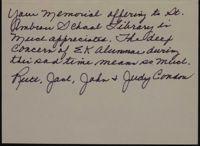 Your Memorial offering to St.
Ambrose School Library is
Much appreciated. The deep
Concern of E K Alumnae during
this sad time means so much.
Russ, Jack, John & Judy Condon